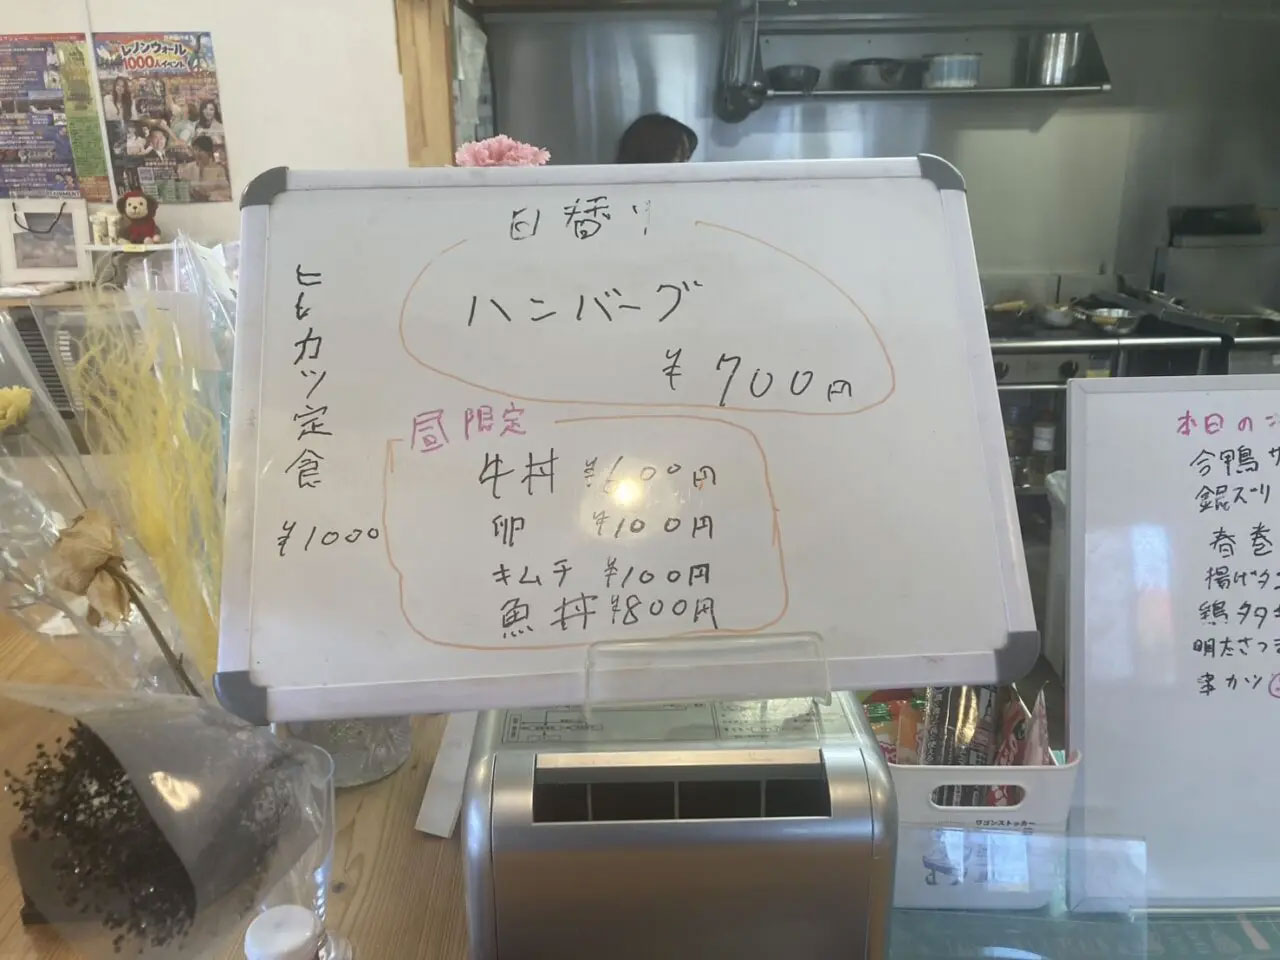 日替り
ハンバーグ
¥700円
ヒレカツ定食
¥1000
昼限定
牛丼 ¥600円
卵 ¥100円
キムチ ¥100円
魚丼 ¥800円
本日の
合鴨
春巻
揚げ
鶏タタキ
明太さつま
串カツ
レノンウォール
1000人イベント
ワゴンストッカー